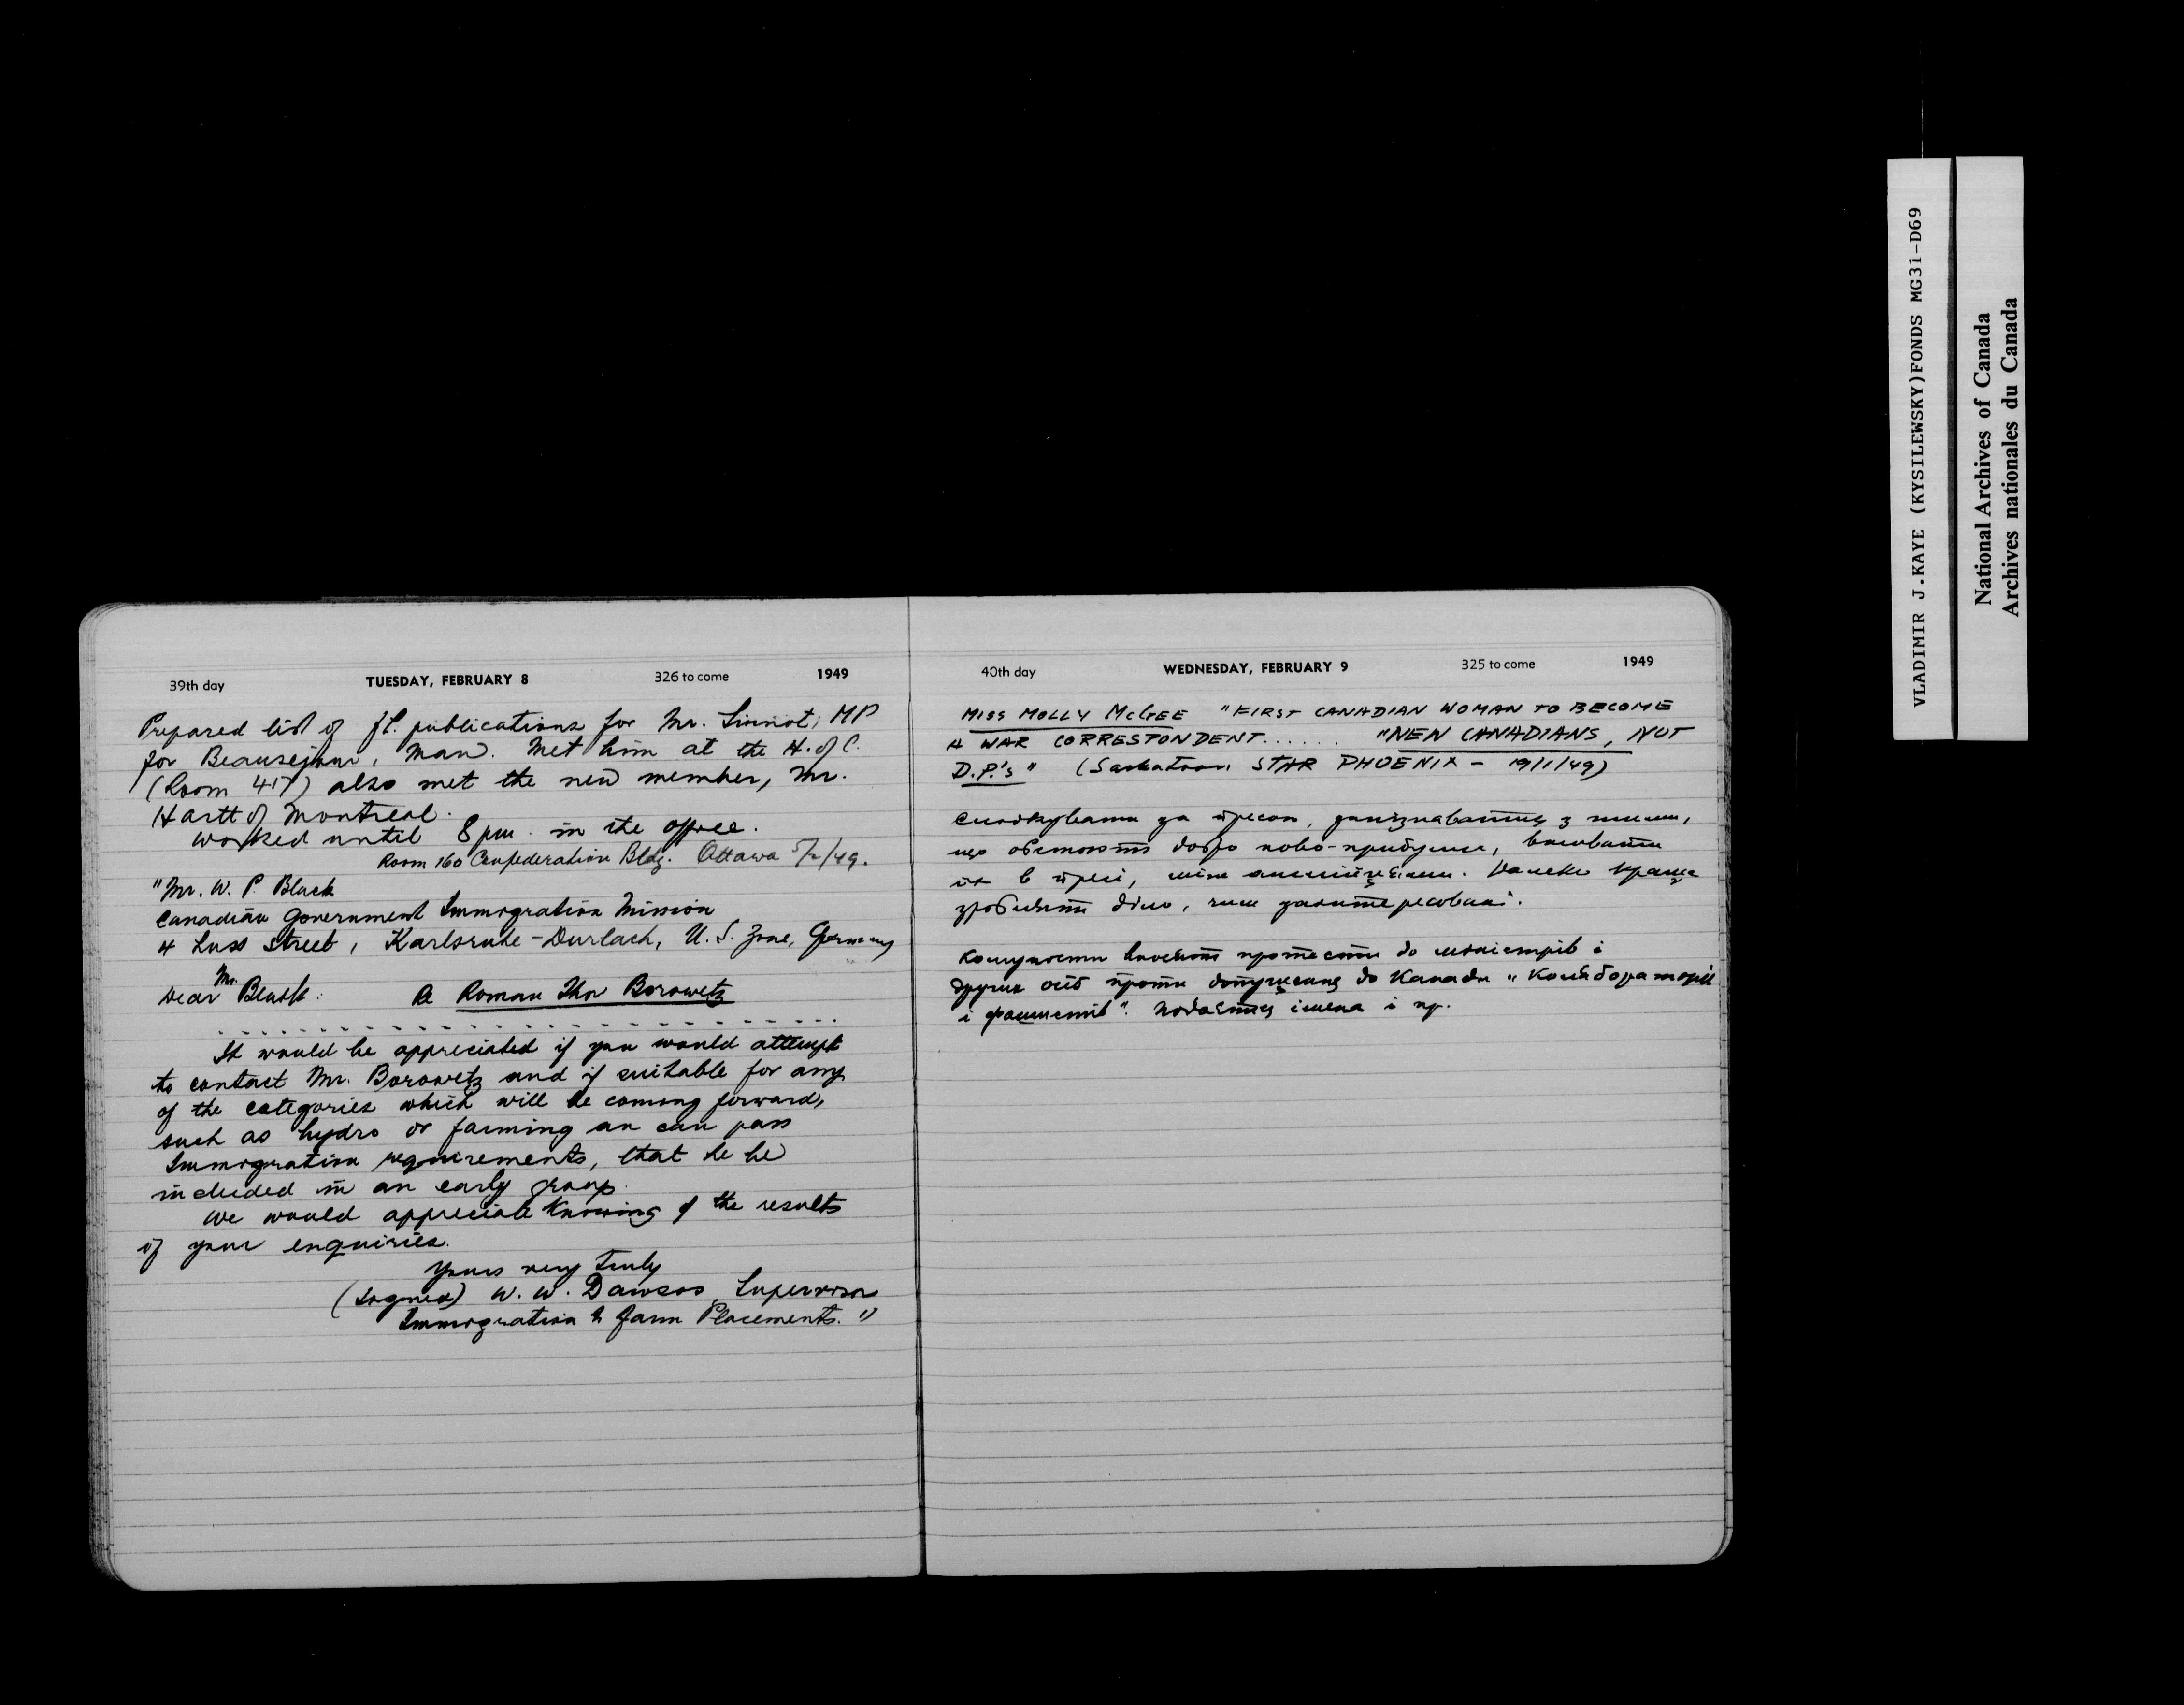 39th day TUESDAY, FEBRUARY 8 326 to come 1949
Prepared list of publications for Mr. Sinnot, MP
for Beausejour, Man. Met him at the H. of C.
(Room 417) also met the new member, Mr.
Hartt of Montreal.
Worked until 8 pm. in the office.
Room 160 Confederation Bldg. Ottawa 5/2/49.
"Mr. W. P. Black
Canadian Government Immigration Mission
4 Luss Street, Karlsruhe-Durlach, U.S. Zone, Germany
Dear Mr. Black: Re Roman Ihor Borowetz
It would be appreciated if you would attempt
to contact Mr. Borowetz and if suitable for any
of the categories which will be coming forward,
such as hydro or farming an can pass
Immigration requirements, that he be
included in an early group.
We would appreciate knowing of the results
of your enquiries.
Yours very truly
(Signed) W. W. Dawson, Supervisor
Immigration & Farm Placements."
40th day WEDNESDAY, FEBRUARY 9 325 to come 1949
MISS MOLLY McGEE "FIRST CANADIAN WOMAN TO BECOME
A WAR CORRESTONDENT...... "NEW CANADIANS, NOT
D.P.'s" (Saskatoon STAR PHOENIX - 19/1/49)
Слідкувати за пресою, запізнаватися з тими,
що обстоюють добро ново-прибулих,
їх в пресі, між англійцями. Далеко краще
зроблять діло, чим заінтересовані.
Комуністи вносять протести до міністрів і
других осіб проти допущення до Канади "Колабораторів
і фашистів". Подається імена і пр.
VLADIMIR J.KAYE (KYSILEWSKY)FONDS MG31-D69
National Archives of Canada
Archives nationales du Canada